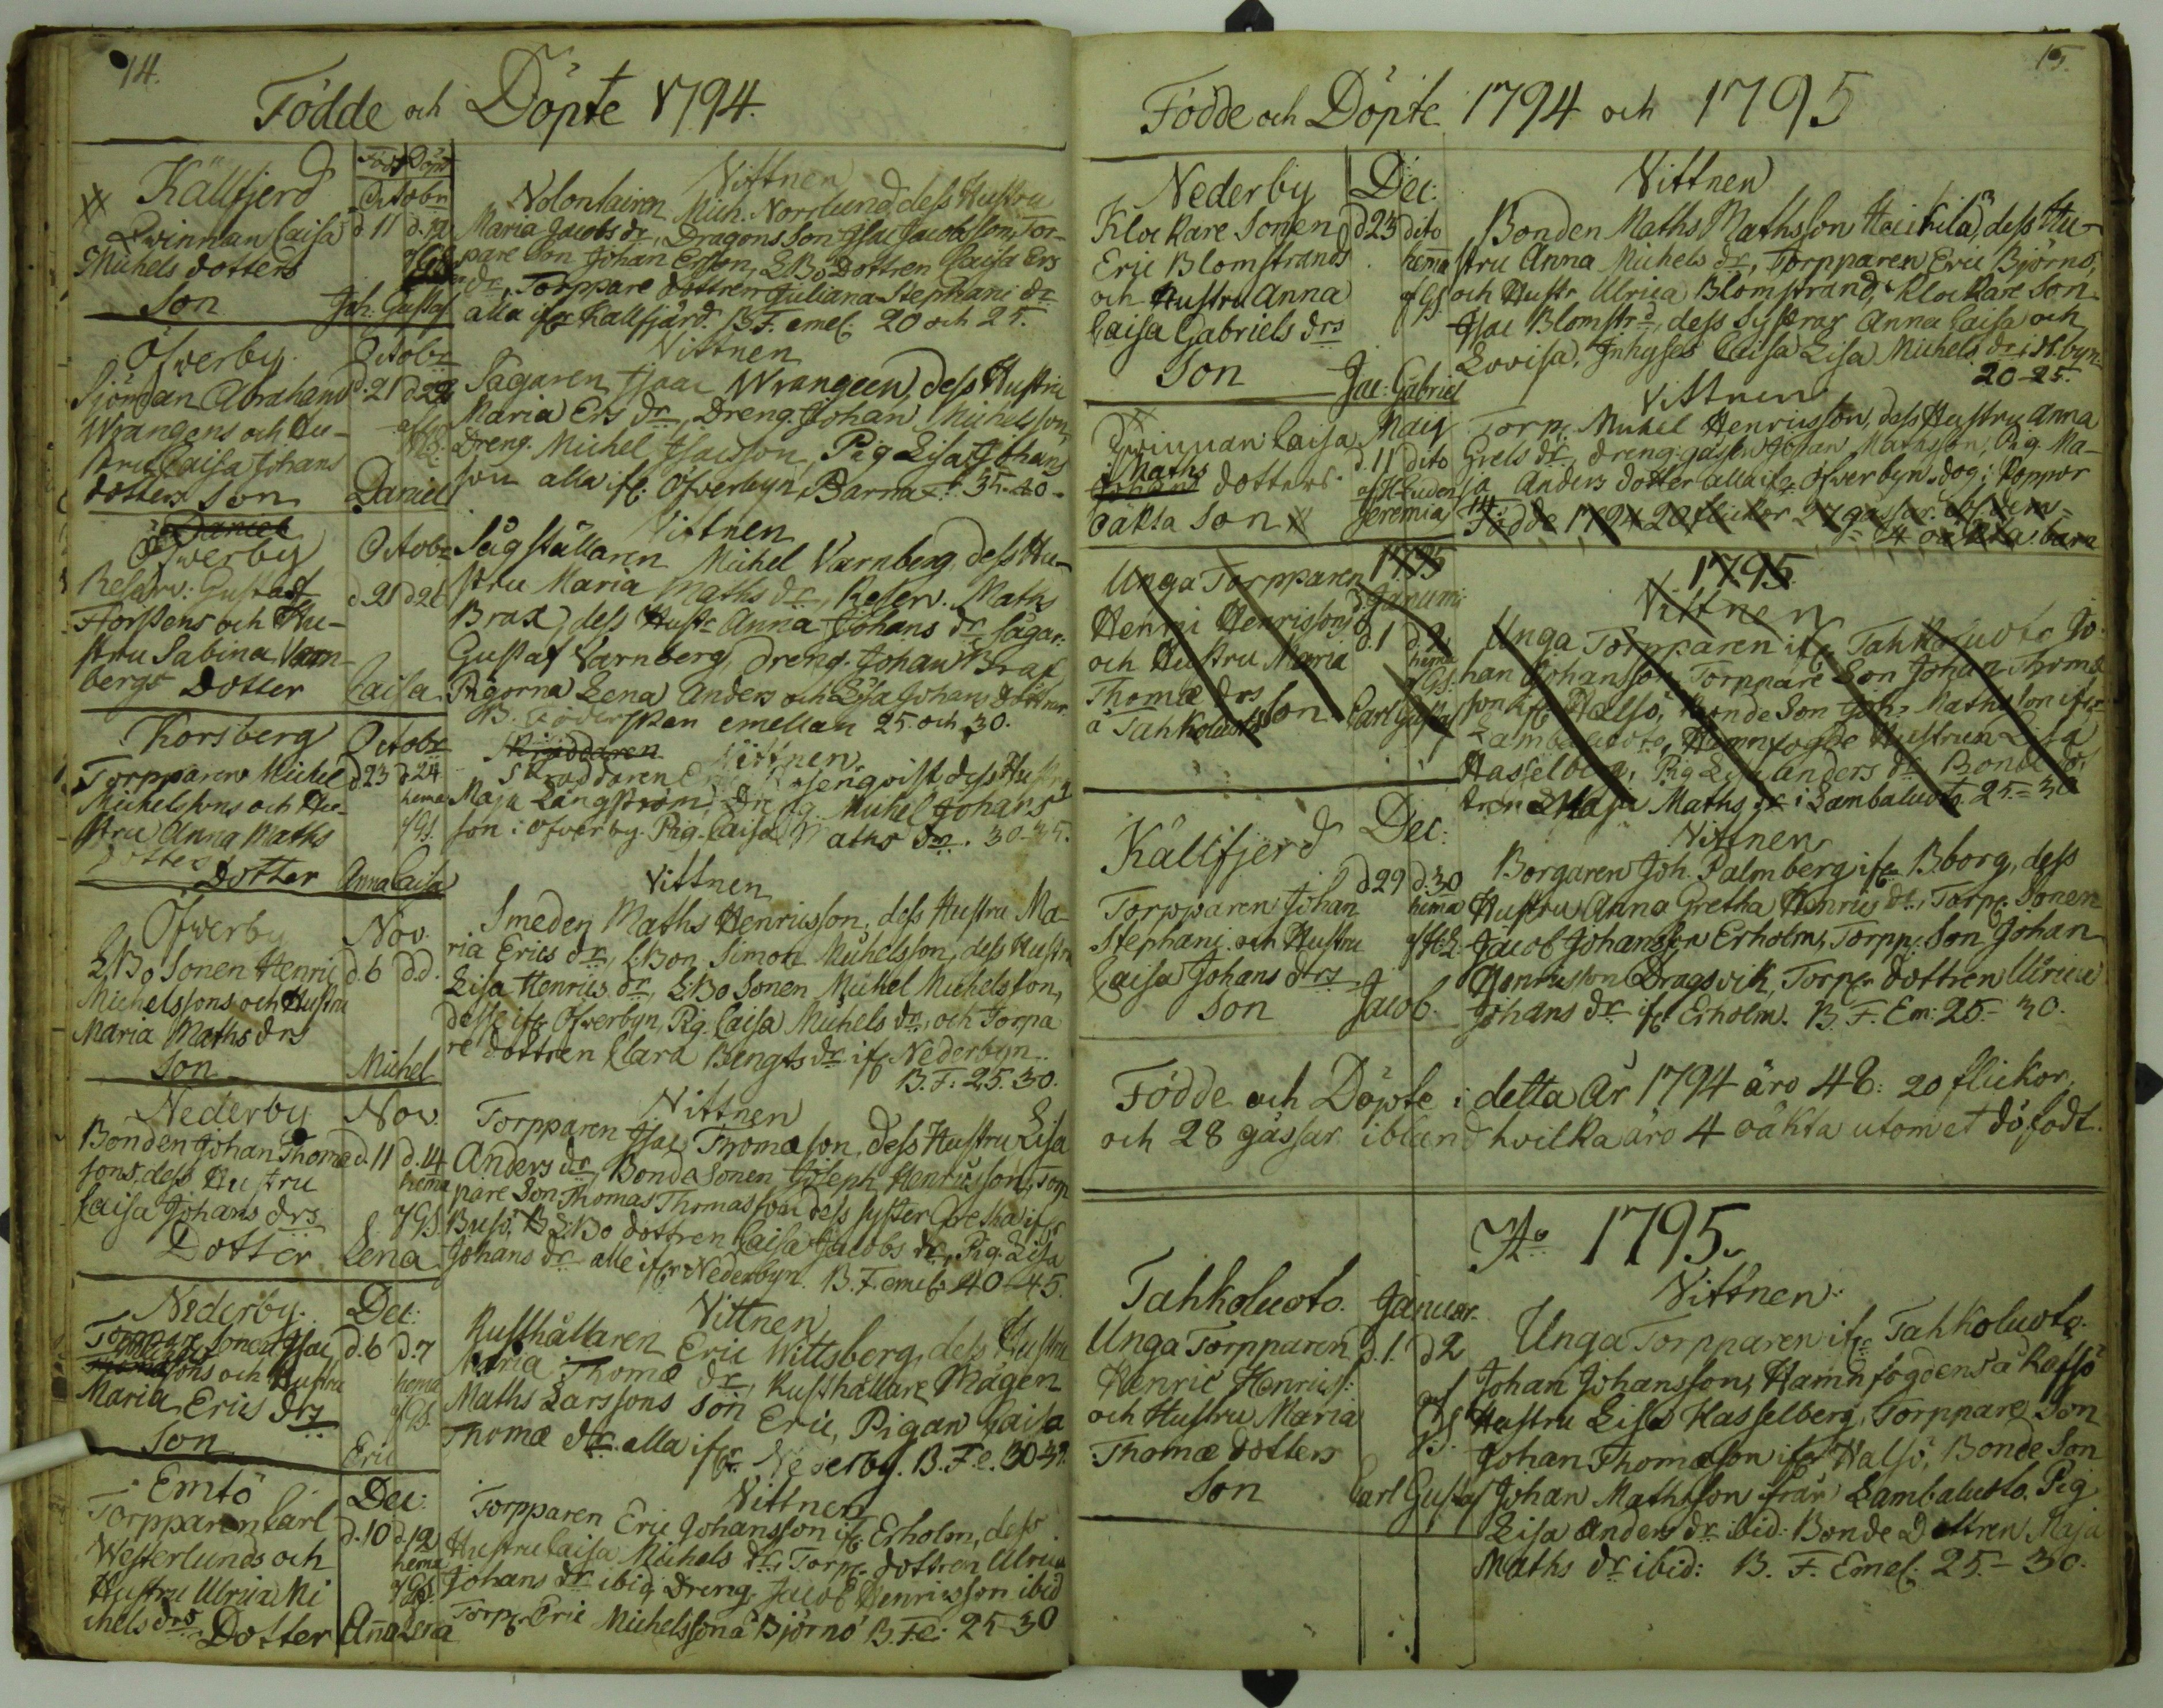 14.
Födde och Döpte 1794.
Källfjerd
Född Döpt
Octobr
Qvinnan Caisa d 11 d. 12
Michels dotters
Son Joh. Gustaf
Vittnen
Volontairen Mich. Norrlund, dess Hustru
Maria Jacobs dr, Dragons Son Isac Jacobsson, Tor-
pare Son Johan Ersson, LBo Dottren Caisa Ers
dr, Torppare dottren Juliana Stephani dr
alla ifr Kallfjärd. B.F. emel. 20 och 25.
Öfverby Octobr
Sjöman Abrahams d. 21 d 22
Wrangens och Hu-
stru Caisa Johans
dotters Son Daniel
Vittnen
Sagaren Isaac Wrangeen, dess Hustru
Maria Ers dr, Dreng. Johan Michelsson,
Dreng. Michel Isacsson, Pig Lisa Johans
alla ifr. Öfverbyn, Barna F. 35-40-
Daniel
Öfverby Octobr
Reserv: Gustaf d 21 d 26
Forssens och Hu-
stru Sabina Varn-
bergs Dotter Caisa
Vittnen
Sågställaren Michel Varnberg, dess Hu-
stru Maria Maths dr, Reserv. Maths
Brax, dess Hustr Anna Johans dr, Sagar:
Gustaf Varnberg, Dreng. Johan Brax,
Pigorna Lena Anders och Lisa Johans döttrar.
B. Föderskan emellan 25 och 30.
Korsberg Octobr
Torpparens Michel d 23 d 24
Michelssons och Hu- hema
stru Anna Maths af GS.
dotters
Dotter Anna Caisa
Skräddaren Vittnen
Skraddaren dess Hustru
Maja Langström, Dreng. Michel Johans
son i Öfverby. Pig. Caisa Maths dr. 30-35.
Öfverby Nov.
LBo Sonen Henric d. 6 d.d.
Michelssons och Hustru
Maria Maths drs
Son Michel
Vittnen
Smeden Maths Henricsson, dess Hustru Ma-
ria Erics dr, LBon Simon Michelsson, dess Hustru
Lisa Henrics dr, LBo Sonen Michel Michelsson,
desse ifr Öfverbyn, Pig. Caisa Michels dr, och Torpa
re dottren Clara Bengts dr ifr Nederbyn.
B.F. 25.30.
Nederby Nov.
Bonden Johan Thomæ d. 11 d. 14
sons, dess Hustru hema
Caisa Johans drs af GS.
Dotter Lena
Vittnen
Torpparen Isac Thomæson, dess Hustru Lisa
Anders dr, Bonda Sonen Joseph Henricsson, Torp
pare Son Thomas Thomasson dess syster Gretha ifr
Busö, LBo dottren Caisa Jacobs dr, Pig. Lisa
Johans dr alle ifr Nederbyn. B.F. emel. 40-45.
Nederby. Dec:
Torppare Sonen Isac d. 6 d. 7
sons och Hustru hema
Maria Erics drs af GS.
Son Eric
Vittnen
Rusthållaren Eric Wittsberg, dess Hustru
Maria Thomæ dr, Rusthållare Mågen
Maths Larssons Son Eric, Pigan Caisa
Thomæ dr. alla ifr. Nederby. B.F.e. 30-
Emtö Dec:
Torpparen Carl d. 10 d. 12
Westerlunds och hema
Hustru Ulrica Mi af GS.
chels drs Dotter Anna Lena
Vittnen
Torpparen Eric Johansson ifr. Erholm, dess
Hustru Caisa Michels dr, Torp. dottren Ulrica
Johans dr ibid, Dreng. Jacob Henricsson ibid
Torp. Eric Michelsson å Björnö B.F.e. 25-30
15.
Födde och Döpte 1794 och 1795
Nederby Dec:
Klockare Sonen d 23 dito
Eric Blomstrands hema
och Hustru Anna af GS.
Caisa Gabriels drs
Son Jac: Gabriel
Vittnen
Bonden Maths Mathsson Heickilä, dess Hu-
stru Anna Michels dr, Torpparen Eric Björnö,
och Hustr Ulrica Blomstrand, Klockare Son
Isac Blomstrd, dess systrar Anna Caisa och
Lovisa, Inhyses Caisa Lisa Michels dr, i N.byn.
20-25.
Qvinnan Caisa Maij
Maths d. 11 dito
Johans dotters
oäkta Son Jeremia
Vittnen
Torp. Michel Henricsson, dess Hustru Anna
Grels dr, dreng-gåssen Johan Mathsson, Pig. Ma-
ja Anders dotter alla ifr Öfverbyn. dog i Koppor
Födde 1794 20 flickor 27 gåssar. af dem
4 oäkta barn
1795
Unga Torpparen Januari
Henric Henricssons d. 1 d. 2
och Hustru Maria hema
Thomæ drs Son af GS.
å Tahkoluoto Carl Gustaf
1795.
Vittnen
Unga Torpparen ifr Tahkoluoto Jo-
han Johansson, Torppare Son Johan Thomæ
son ifr Halsö, Bonde Son Joh. Mathsson ifr
Lambaluoto, Hamnfogde Hustrun Lisa
Hasselberg, Pig Lisa Anders dr Bonde Dot
tren Maja Maths dr i Lambaluoto. 25-30
Källfjerd Dec:
d 29 d. 30
Torpparen Johan hema
Stephani och Hustru af H.L.
Caisa Johans drs
Son Jacob.
Vittnen
Borgaren Joh. Palmberg ifr Bborg, dess
Hustru Anna Gretha Henrics dr, Torp. Sonen
Jacob Johansson Erholm, Torpp. Son Johan
Henricsson Dragsvik, Torpr dottren Ulrica
Johans dr ifr Erholm. B.F. Em: 25-30.
Födde och Döpte i detta År 1794 äro 48: 20 flickor,
och 28 gåssar ibland hvilka äro 4 oäkta utom et dödfödt.
Ao 1795.
Tahkoluoto. Januar.
Unga Torpparen d. 1. d 2
Henric Henricss:
och Hustru Maria af GS.
Thomæ dotters
Son Carl Gustaf
Vittnen.
Unga Torpparen ifr Tahkoluoto
Johan Johansson, Hamnfogdens å Räfsö
Hustru Lisa Hasselberg, Torppare Son
Johan Thomæson ifr Halsö, Bonde Son
Johan Mathsson från Lambaluoto. Pig
Lisa Anders dr ibid: Bonde Dottren Maja
Maths dr ibid: B. F. Emel: 25-30.